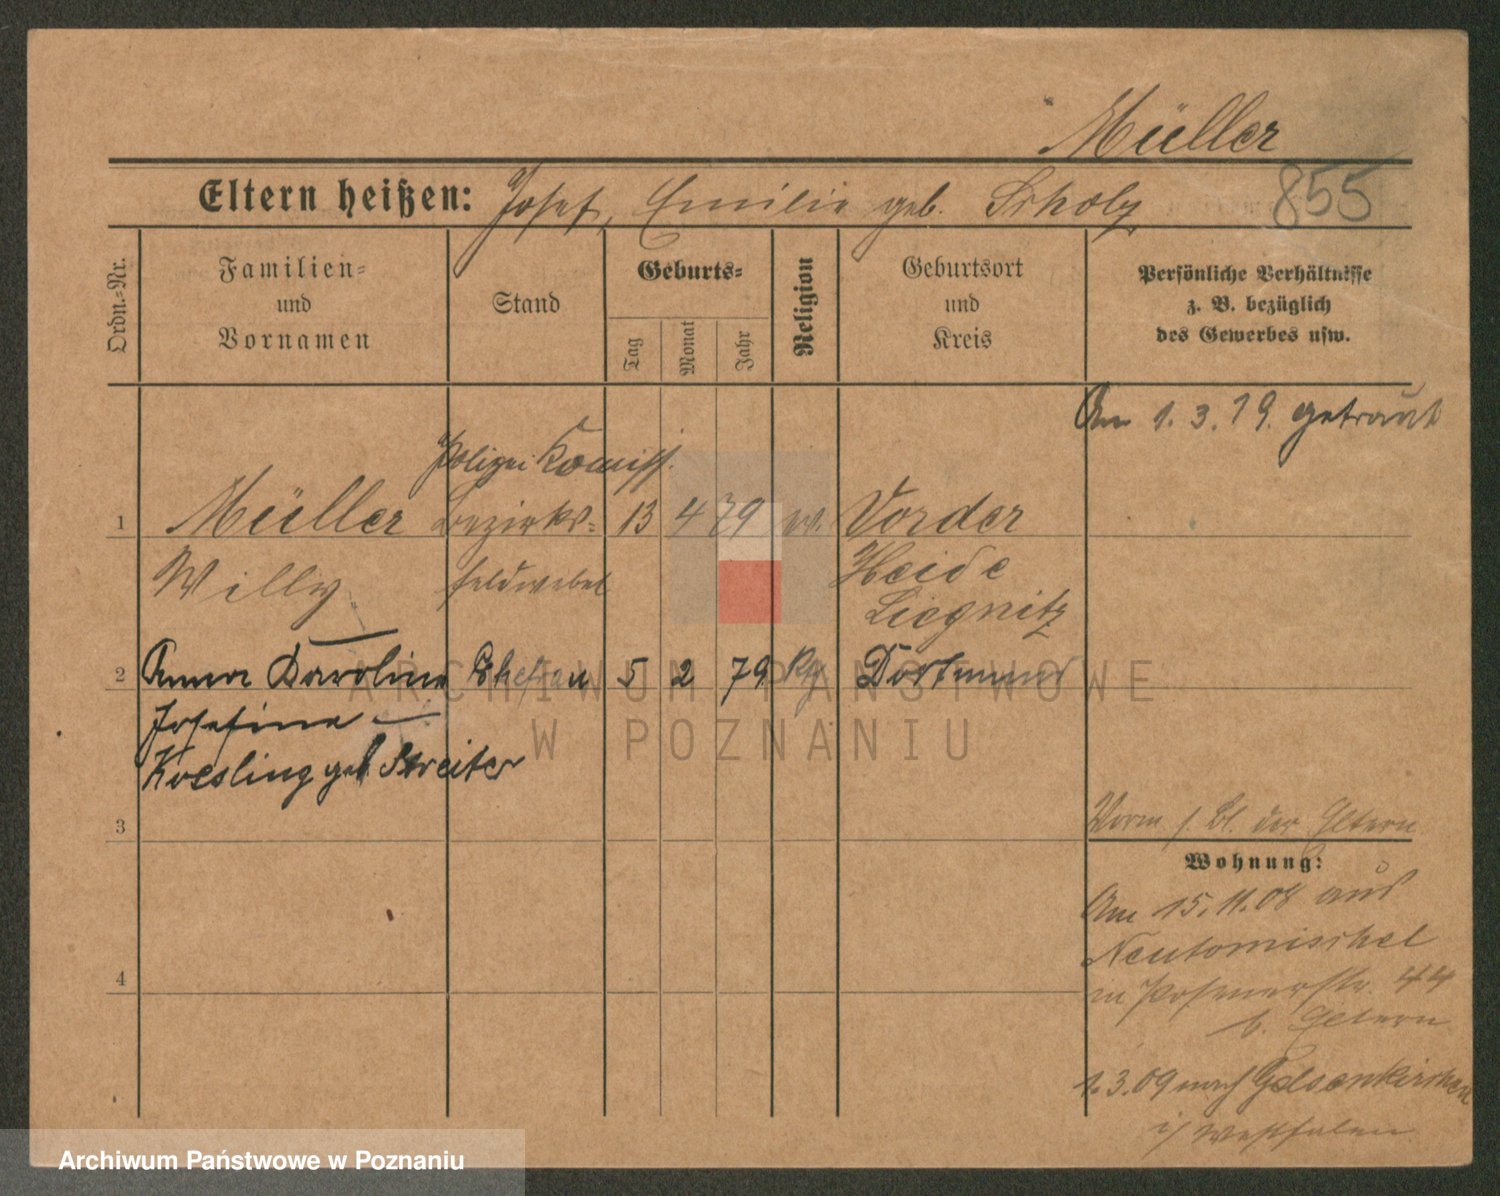 Müller
Eltern heißen: Josef, Emilie geb. Scholz 855
Ordn.-Nr.
Familien-
und
Vornamen
Stand
Geburts-
Tag
Monat
Jahr
Religion
Geburtsort
und
Kreis
Persönliche Verhältnisse
z. B. bezüglich
des Gewerbes usw.
Am 1.3.19. getraut
Polizei Komiss.
1 Müller Bezirks- 13 4 79 ev. Vorder
Willy feldwebel Heide
Liegnitz
2 Anna Karoline Ehefrau 5 2 79 Dortmund
Josefine
Koesling geb. Streiter
3
Vorm. s. Bl. der Eltern
Wohnung:
Am 15.11.08 aus
Neutomischel
in Posenerstr. 44
b. Eltern
4
1.3.09 nach Gelsenkirchen
i/ Westfalen
ARCHIWUM PAŃSTWOWE
W POZNANIU
Archiwum Państwowe w Poznaniu